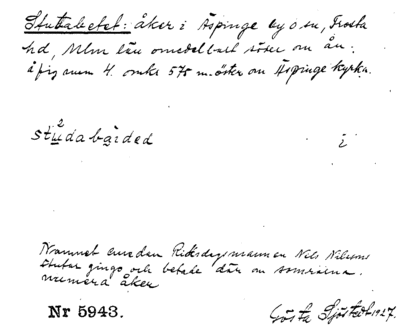 Stutabetet: åker i Äspinge by o sn, Frosta
hd, Mlm län omedelbart söder om ån.
å fig num 4. omkr 575 m. öster om Äspinge kyrka.
2
studabǻided i
Namnet emedan Riksdagsmannen Nils Nilssons
stutar gingo och betade där om somrarna.
numera åker
Nr 5943. Gösta Sjöstedt 1927.